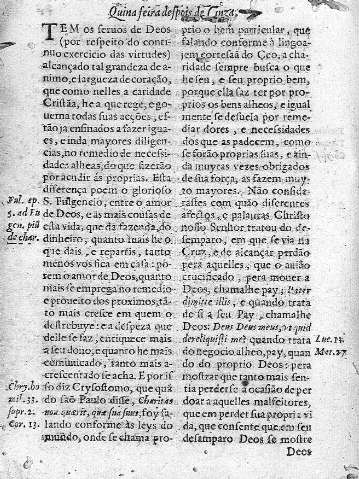 Quina feira despois de Cinza,
TEM os seruos de Deos
(por respeito do conti-
nuo exercicio das virtudes)
alcançado tal grandeza de a-
nimo, e largueza de coração,
que como nelles a caridade
Cristãa, he a que rege, e go-
uerna todas suas acções, es-
tão ja ensinados a fazer igua-
es, e inda mayores diligen-
cias, no remedio de necessi-
dades alheas, do que fizerão
por acudir ás proprias. Esta
diferença poem o glorioso
S. Fulgencio, entre o amor
de Deos, e as mais cousas de
esta vida, que da fazenda, do
dinheiro, quanto mais he o
que dais, e repartis, tanto
menos vos fica em casa: po-
rem o amor de Deos, quanto
mais se emprega no remedio
e proueito dos proximos, tã-
to mais cresce em quem o
destribuye: e a despeza que
delle se faz, enriquece mais
a seu dono, e quanto he mais
comunicado, tanto mais a-
crescentado se acha. E por is
so diz Crysostomo, que quã
do são Paulo disse, Charitas
non quærit, quæ sua sunt, foy fa-
lando conforme às leys do
mundo, onde se chama pro-
Ful. ep.
5. ad Eu
gen. pissi
de char.
Chry. ho
mil. 33.
sopr. 2.
Cor. 13.
prio o bem particular, que
falando conforme à lingoa-
jem cortesaã do Ceo, a cha-
ridade sempre busca o que
he seu, e seu proprio bem,
porque ella faz ter por pro-
prios os bens alheos, e igual
mente se desuela por reme-
diar dores, e necessidades
dos que as padecem, como
se forão proprias suas, e ain-
da muytas vezes obrigados
de sua força, as fazem muy-
to mayores. Não conside-
rastes com quão diferentes
afectos, e palauras Christo
nosso Senhor tratou do de-
semparo, em que se via na
Cruz, e de alcançar perdão
pera aquelles, que o auião
crucificado, pera mouer a
Deos, chamalhe pay: Pater
dimitte illis, e quando trata
de si a seu Pay, chamalhe
Deos: Deus Deus meus, vt quid
dereliquisti me? quando trata
do negocio alheo, pay, quan
do do proprio Deos: pera
mostrar que tanto mais sen-
tia perderse a ocasião de per
doar a aquelles malfeitores,
que em perder sua propria vi
da, que consente que em seu
desamparo Deos se mostre
Deos
Luc. 23.
Mat. 27.